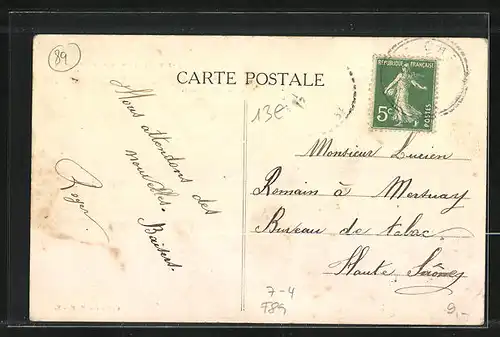 89
CARTE POSTALE
RÉPUBLIQUE FRANÇAISE
5c
POSTES
13E
Nous attendons des
nouvelles. Baisers.
Roger.
Monsieur Lucien
Romain à Mersuay
Bureau de tabac
Haute Saône
7-4
F89
9,-